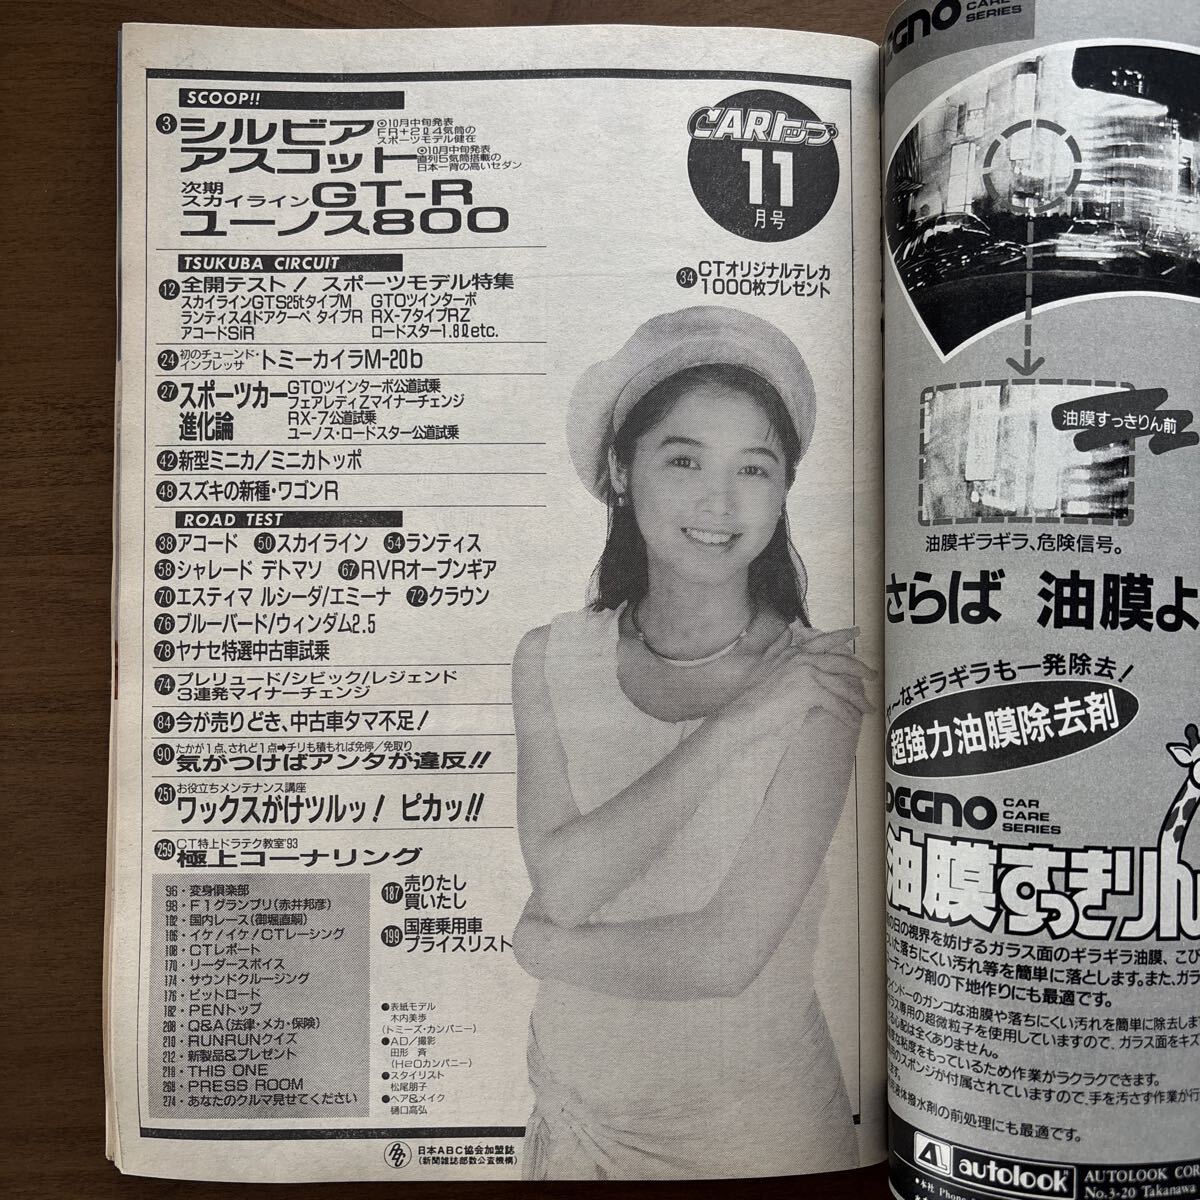 SCOOP!!
3 シルビア ◎10月中旬発表
FR+2ℓ4気筒の
スポーツモデル健在
アスコット ◎10月中旬発表
直列5気筒搭載の
日本一背の高いセダン
次期
スカイライン GT-R
ユーノス800
CARトップ
11
月号
34 CTオリジナルテレカ
1000枚プレゼント
TSUKUBA CIRCUIT
12 全開テスト! スポーツモデル特集
スカイラインGTS25tタイプM GTOツインターボ
ランティス4ドアクーペ タイプR RX-7タイプRZ
アコードSiR ロードスター1.8ℓetc.
24 初のチューンド・
インプレッサ トミーカイラM-20b
27 スポーツカー
進化論
GTOツインターボ公道試乗
フェアレディZマイナーチェンジ
RX-7公道試乗
ユーノス・ロードスター公道試乗
42 新型ミニカ/ミニカトッポ
48 スズキの新種・ワゴンR
ROAD TEST
38 アコード 50 スカイライン 54 ランティス
58 シャレード デトマソ 67 RVRオープンギア
70 エスティマ ルシーダ/エミーナ 72 クラウン
76 ブルーバード/ウィンダム2.5
78 ヤナセ特選中古車試乗
74 プレリュード/シビック/レジェンド
3連発マイナーチェンジ
84 今が売りどき、中古車タマ不足!
90 たかが1点、されど1点➡チリも積もれば免停/免取り
気がつけばアンタが違反!!
251 お役立ちメンテナンス講座
ワックスがけツルッ! ピカッ!!
259 CT特上ドラテク教室'93
極上コーナリング
96・変身倶楽部
98・F1グランプリ(赤井邦彦)
102・国内レース(御堀直嗣)
106・イケ!イケ!CTレーシング
108・CTレポート
170・リーダースボイス
174・サウンドクルージング
176・ピットロード
182・PENトップ
208・Q&A(法律・メカ・保険)
210・RUNRUNクイズ
212・新製品&プレゼント
218・THIS ONE
268・PRESS ROOM
274・あなたのクルマ見せてください
187 売りたし
買いたし
199 国産乗用車
プライスリスト
●表紙モデル
木内美歩
(トミーズ・カンパニー)
●AD/撮影
田形 斉
(H2Oカンパニー)
●スタイリスト
松尾朋子
●ヘア&メイク
樋口高弘
日本ABC協会加盟誌
(新聞雑誌部数公査機構)
CAR
CARE
SERIES
油膜すっきりん前
油膜ギラギラ、危険信号。
さらば 油膜よ
なギラギラも一発除去!
超強力油膜除去剤
CAR
CARE
SERIES
油膜すっきりん
の日の視界を妨げるガラス面のギラギラ油膜、こび
いた落ちにくい汚れ等を簡単に落とします。また、ガラ
ーティング剤の下地作りにも最適です。
インドーのガンコな油膜や落ちにくい汚れを簡単に除去しま
ラス専用の超微粒子を使用していますので、ガラス面をキズ
る心配は全くありません。
な粘度をもっているため作業がラクラクできます。
用のスポンジが付属されていますので、手を汚さず作業が行
ます。
体撥水剤の前処理にも最適です。
AL autolook
AUTOLOOK COR
No.3-20 Takanawa
●本社 Phone